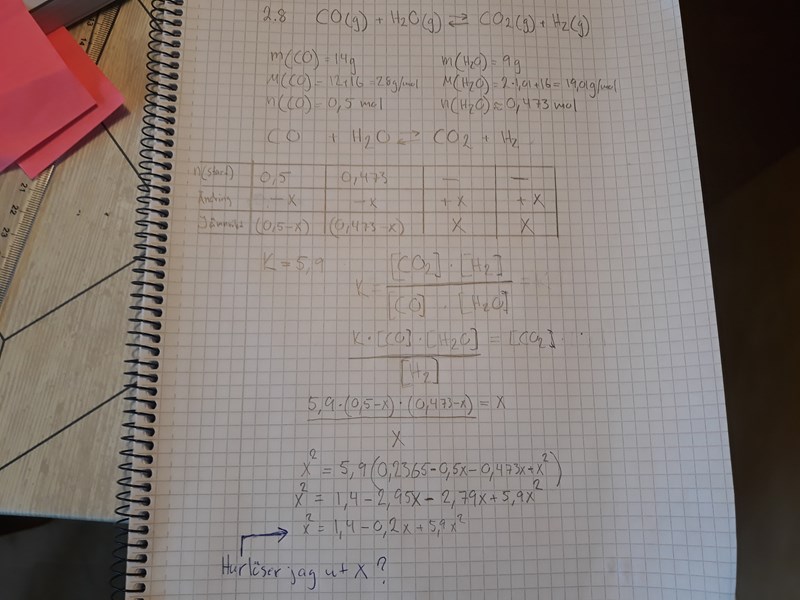 2.8 CO(g) + H2O(g) ⇄ CO2(g) + H2(g)
m(CO) = 14g m(H2O) = 9g
M(CO) = 12+16 = 28g/mol M(H2O) = 2·1,01+16 = 19,01g/mol
n(CO) = 0,5 mol n(H2O) ≈ 0,473 mol
CO + H2O ⇄ CO2 + H2
n(start) 0,5 0,473 — —
Ändring -x -x +x +x
(0,5-x) (0,473-x) X X
K = 5,9 K = [CO2]·[H2] / [CO]·[H2O] =
K·[CO]·[H2O] / [H2] = [CO2]
5,9·(0,5-x)·(0,473-x) / X = X
x² = 5,9(0,2365-0,5x-0,473x+x²)
x² = 1,4-2,95x-2,79x+5,9x²
x² = 1,4-0,2x+5,9x²
Hur löser jag ut X?
21
22
23